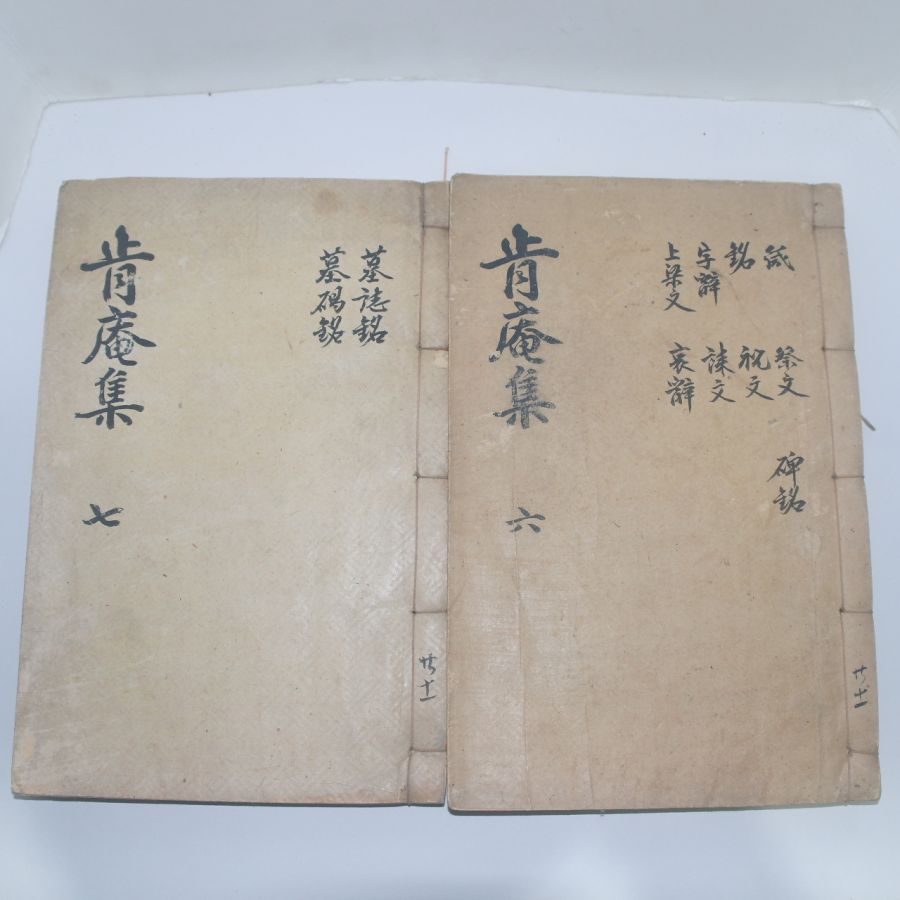 共十一
箴
銘
字辭
上梁文
祭文
祝文
誄文
哀辭
碑銘
肯庵集 六
共十一
墓誌銘
墓碣銘
肯庵集 七